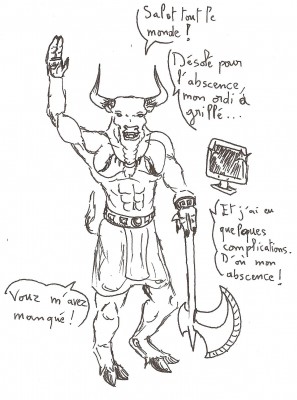 Salut tout le
monde !
Désolé pour
l'abscence,
mon ordi à
grillé...
Et j'ai eu
quelques
complications.
D'où mon
abscence !
Vous m'avez
manqué !